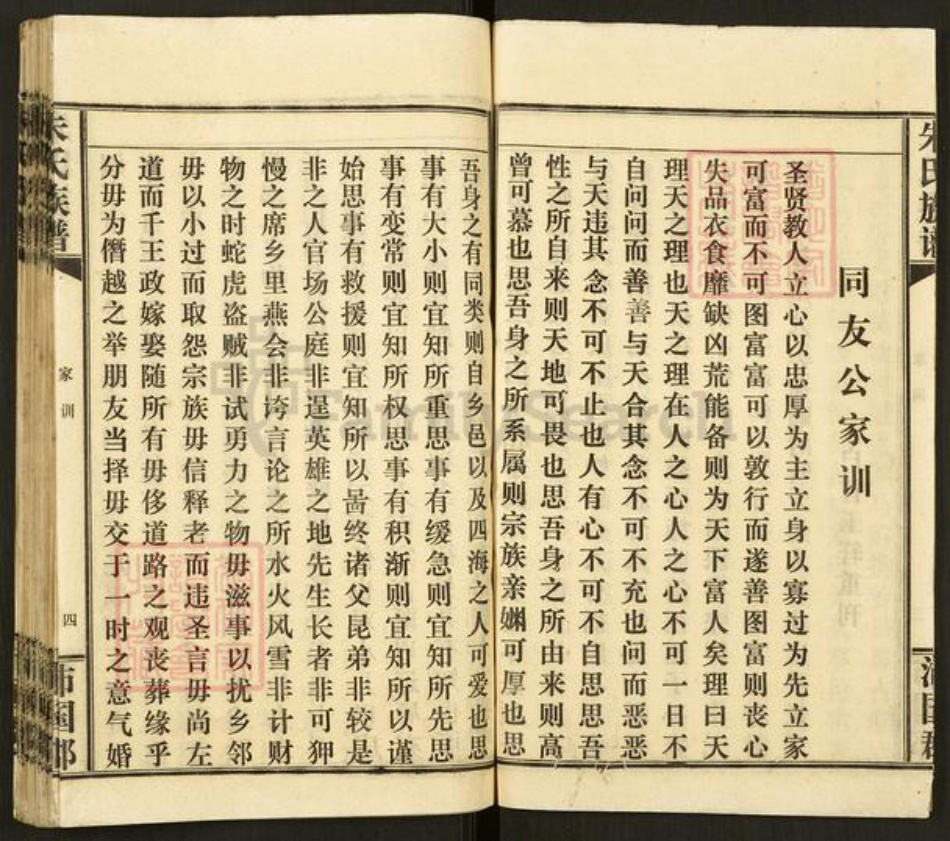 朱氏族谱
同友公家训
圣贤教人立心以忠厚为主立身以寡过为先立家
可富而不可图富富可以敦行而遂善图富则丧心
失品衣食靡缺凶荒能备则为天下富人矣理曰天
理天之理也天之理在人之心人之心不可一日不
自问问而善善与天合其念不可不充也问而恶恶
与天违其念不可不止也人有心不可不自思思吾
性之所自来则天地可畏也思吾身之所由来则高
曾可慕也思吾身之所系属则宗族亲娴可厚也思
吾身之有同类则自乡邑以及四海之人可爱也思
事有大小则宜知所重思事有缓急则宜知所先思
事有变常则宜知所权思事有积渐则宜知所以谨
始思事有救援则宜知所以啚终诸父昆弟非较是
非之人官场公庭非逞英雄之地先生长者非可狎
慢之席乡里燕会非诗言论之所水火风雪非计财
物之时蛇虎盗贼非试勇力之物毋滋事以扰乡邻
毋以小过而取怨宗族毋信释老而违圣言毋尚左
道而干王政嫁娶随所有毋侈道路之观丧葬缘乎
分毋为僭越之举朋友当择毋交于一时之意气婚
朱氏族谱
家训
四
沛国郡
FamilySearch